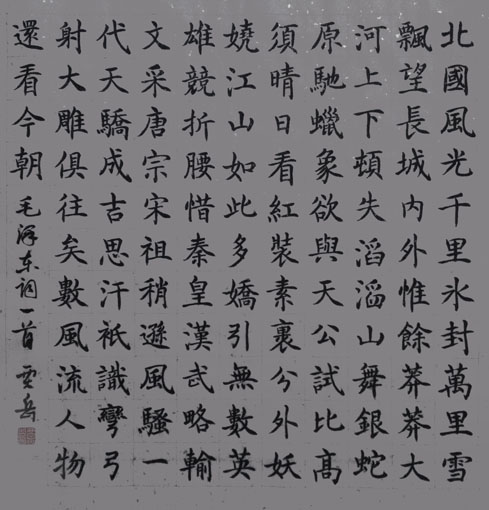 北國風光千里氷封萬里雪
飄望長城内外惟餘莽莽大
河上下頓失滔滔山舞銀蛇
原馳蠟象欲與天公試比高
須晴日看紅裝素裹分外妖
嬈江山如此多嬌引無數英
雄競折腰惜秦皇漢武略輸
文采唐宗宋祖稍遜風騷一
代天驕成吉思汗衹識彎弓
射大雕俱往矣數風流人物
還看今朝 毛泽东词一首 雲岳